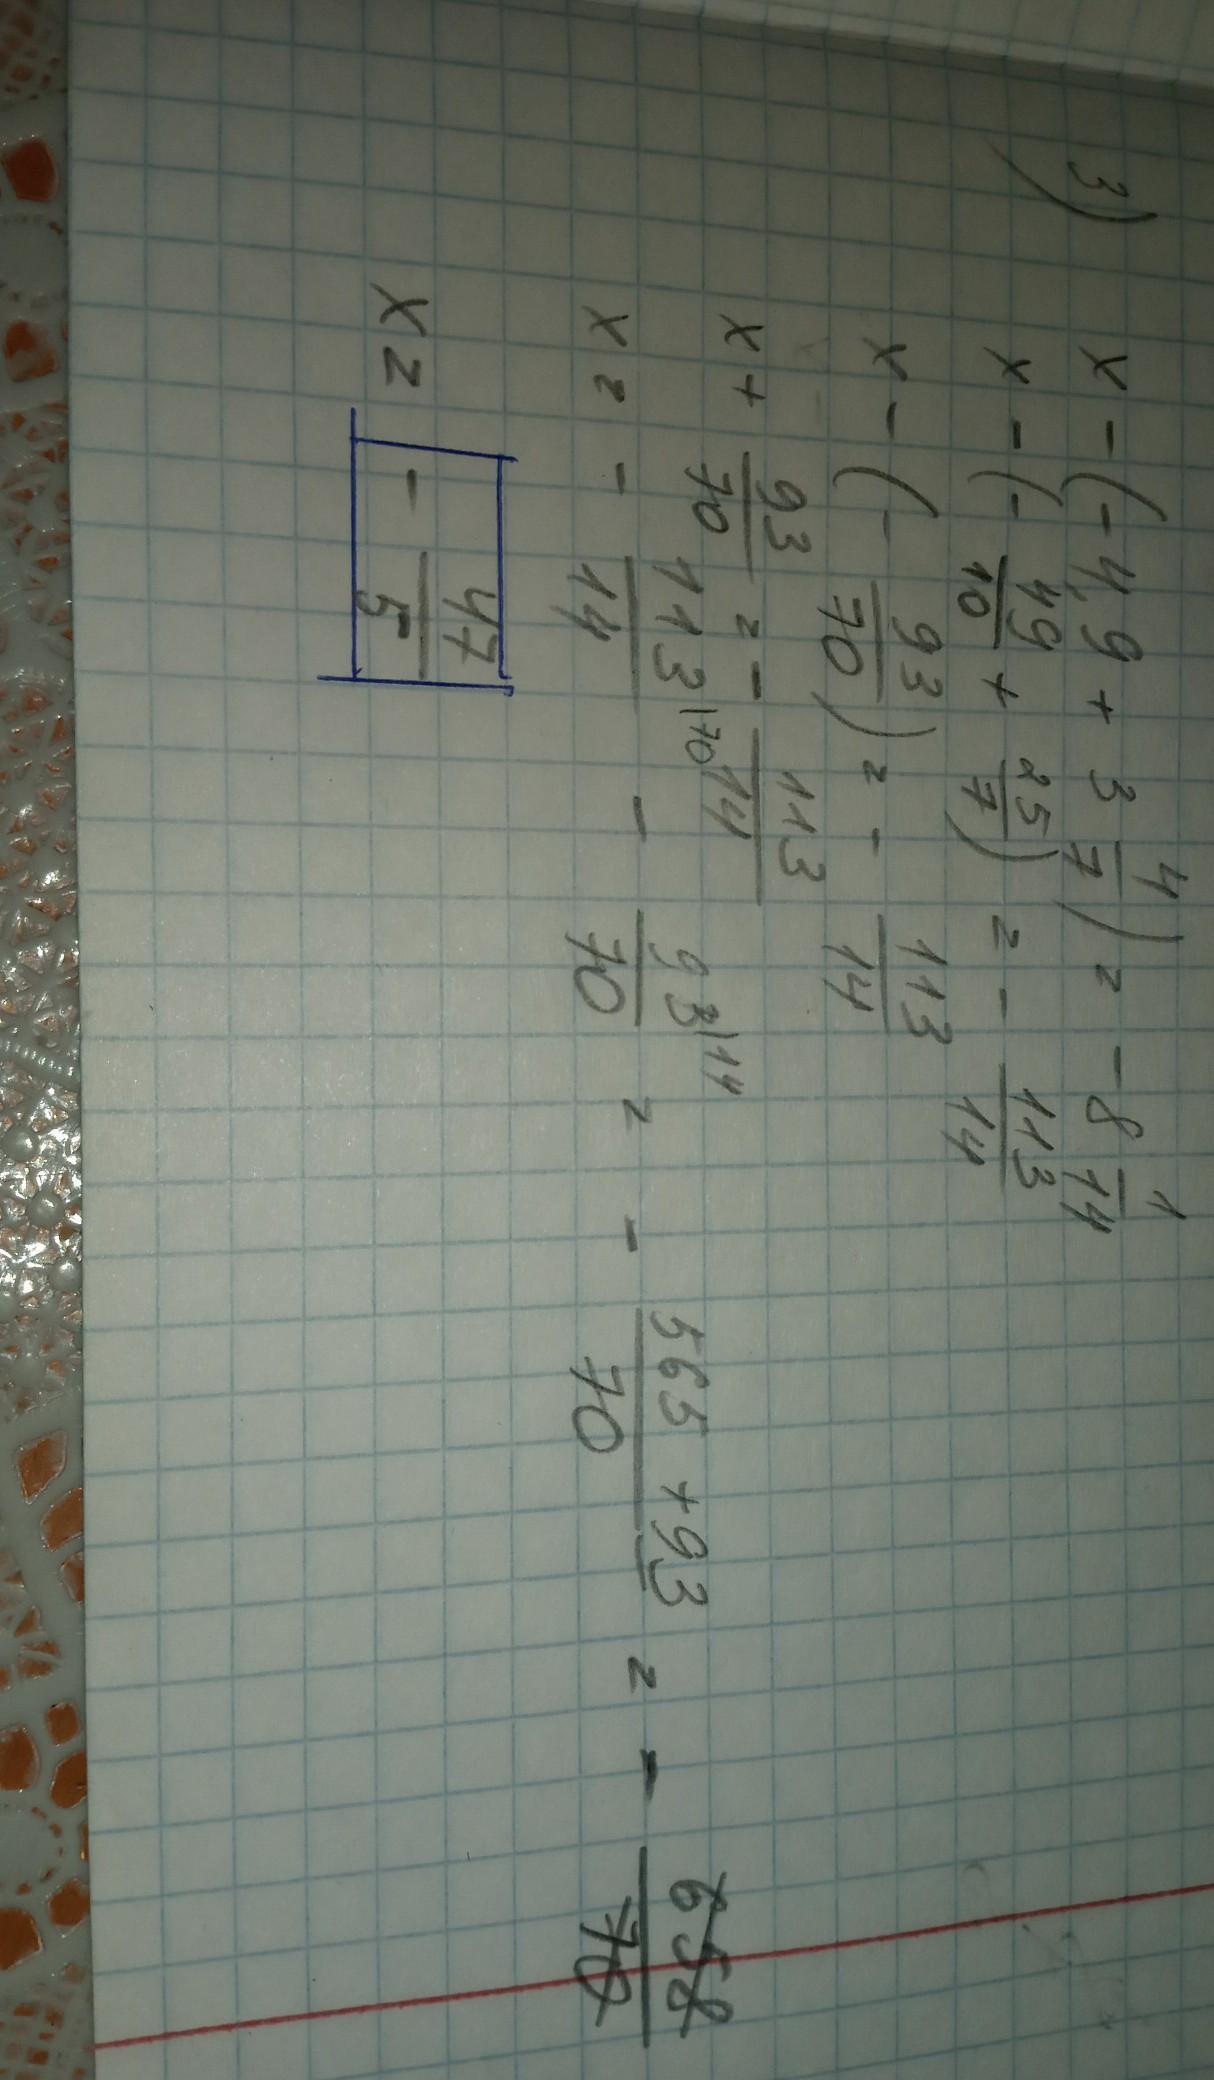 3) x - (-4,9 + 3 4/7) = -8 1/14
x - (- 49/10 + 25/7) = - 113/14
x - (- 93/70) = - 113/14
x + 93/70 = - 113/14
x = - 113|70/14 - 93|14/70 = - 565 + 93/70 = - 658/70
x = - 47/5